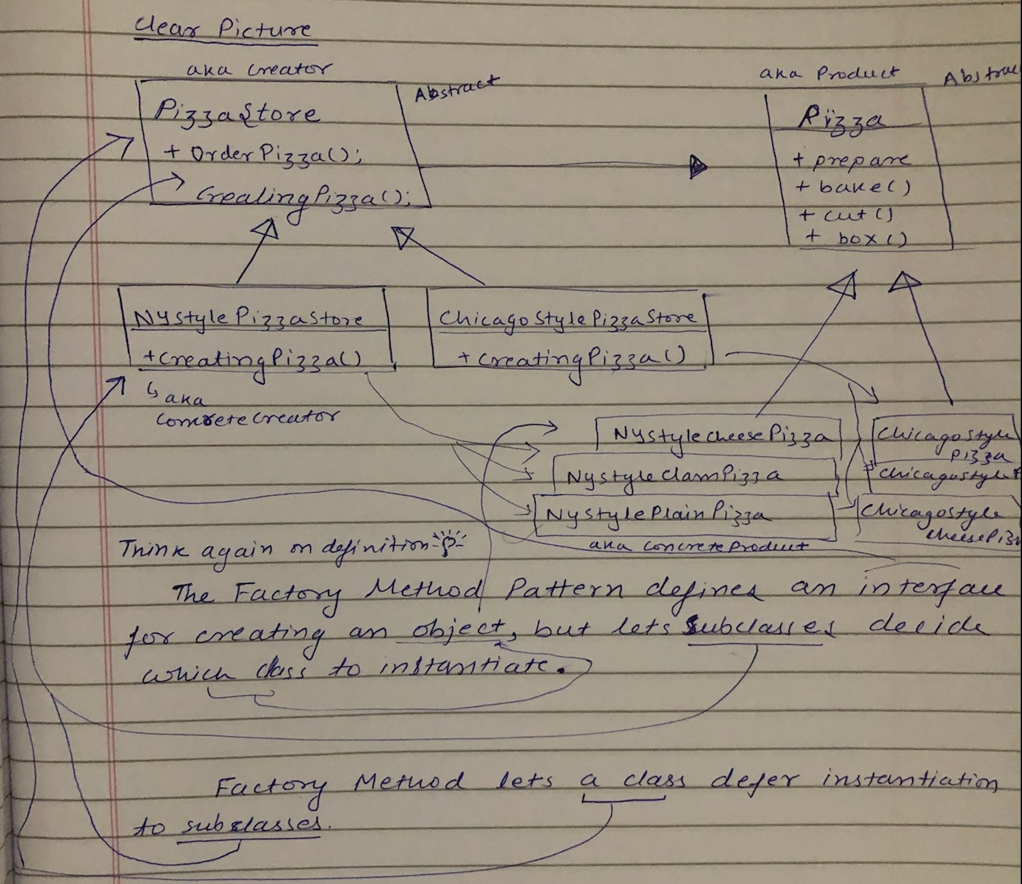 Clear Picture
aka Creator
Abstract
PizzaStore
+ OrderPizza();
CreatingPizza();
aka Product
Abstrac
Pizza
+ prepare
+ bake()
+ cut()
+ box()
NYStylePizzaStore
+CreatingPizza()
aka
ConcreteCreator
ChicagoStylePizzaStore
+ CreatingPizza()
NYStyleCheesePizza
NyStyleClamPizza
NyStylePlainPizza
aka ConcreteProduct
ChicagoStyle
Pizza
ChicagoStyleP
ChicagoStyle
CheesePizz
Think again on definition
The Factory Method Pattern defines an interface
for creating an object, but lets subclasses decide
which class to instantiate.
Factory Method lets a class defer instantiation
to subclasses.